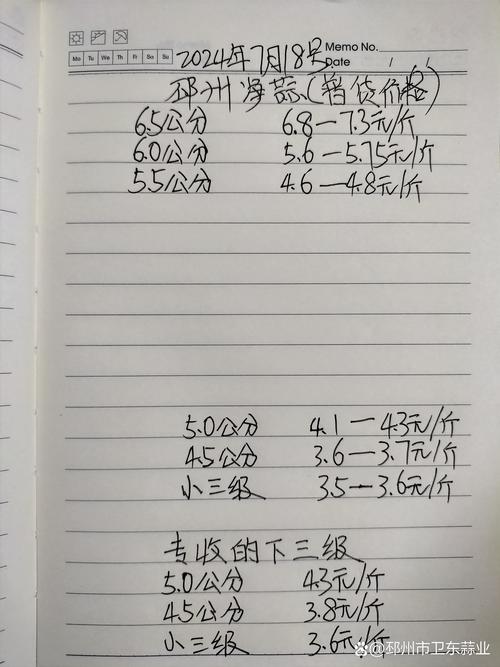 Memo No.
Mo Tu We Th Fr Sa Su
Date / /
2024年7月18号
邳州净蒜(暂货价格)
6.5公分 6.8—7.3元/斤
6.0公分 5.6—5.75元/斤
5.5公分 4.6—4.8元/斤
5.0公分 4.1—4.3元/斤
4.5公分 3.6—3.7元/斤
小三级 3.5—3.6元/斤
专收的下三级
5.0公分 4.3元/斤
4.5公分 3.8元/斤
小三级 3.6元/斤
@邳州市卫东蒜业